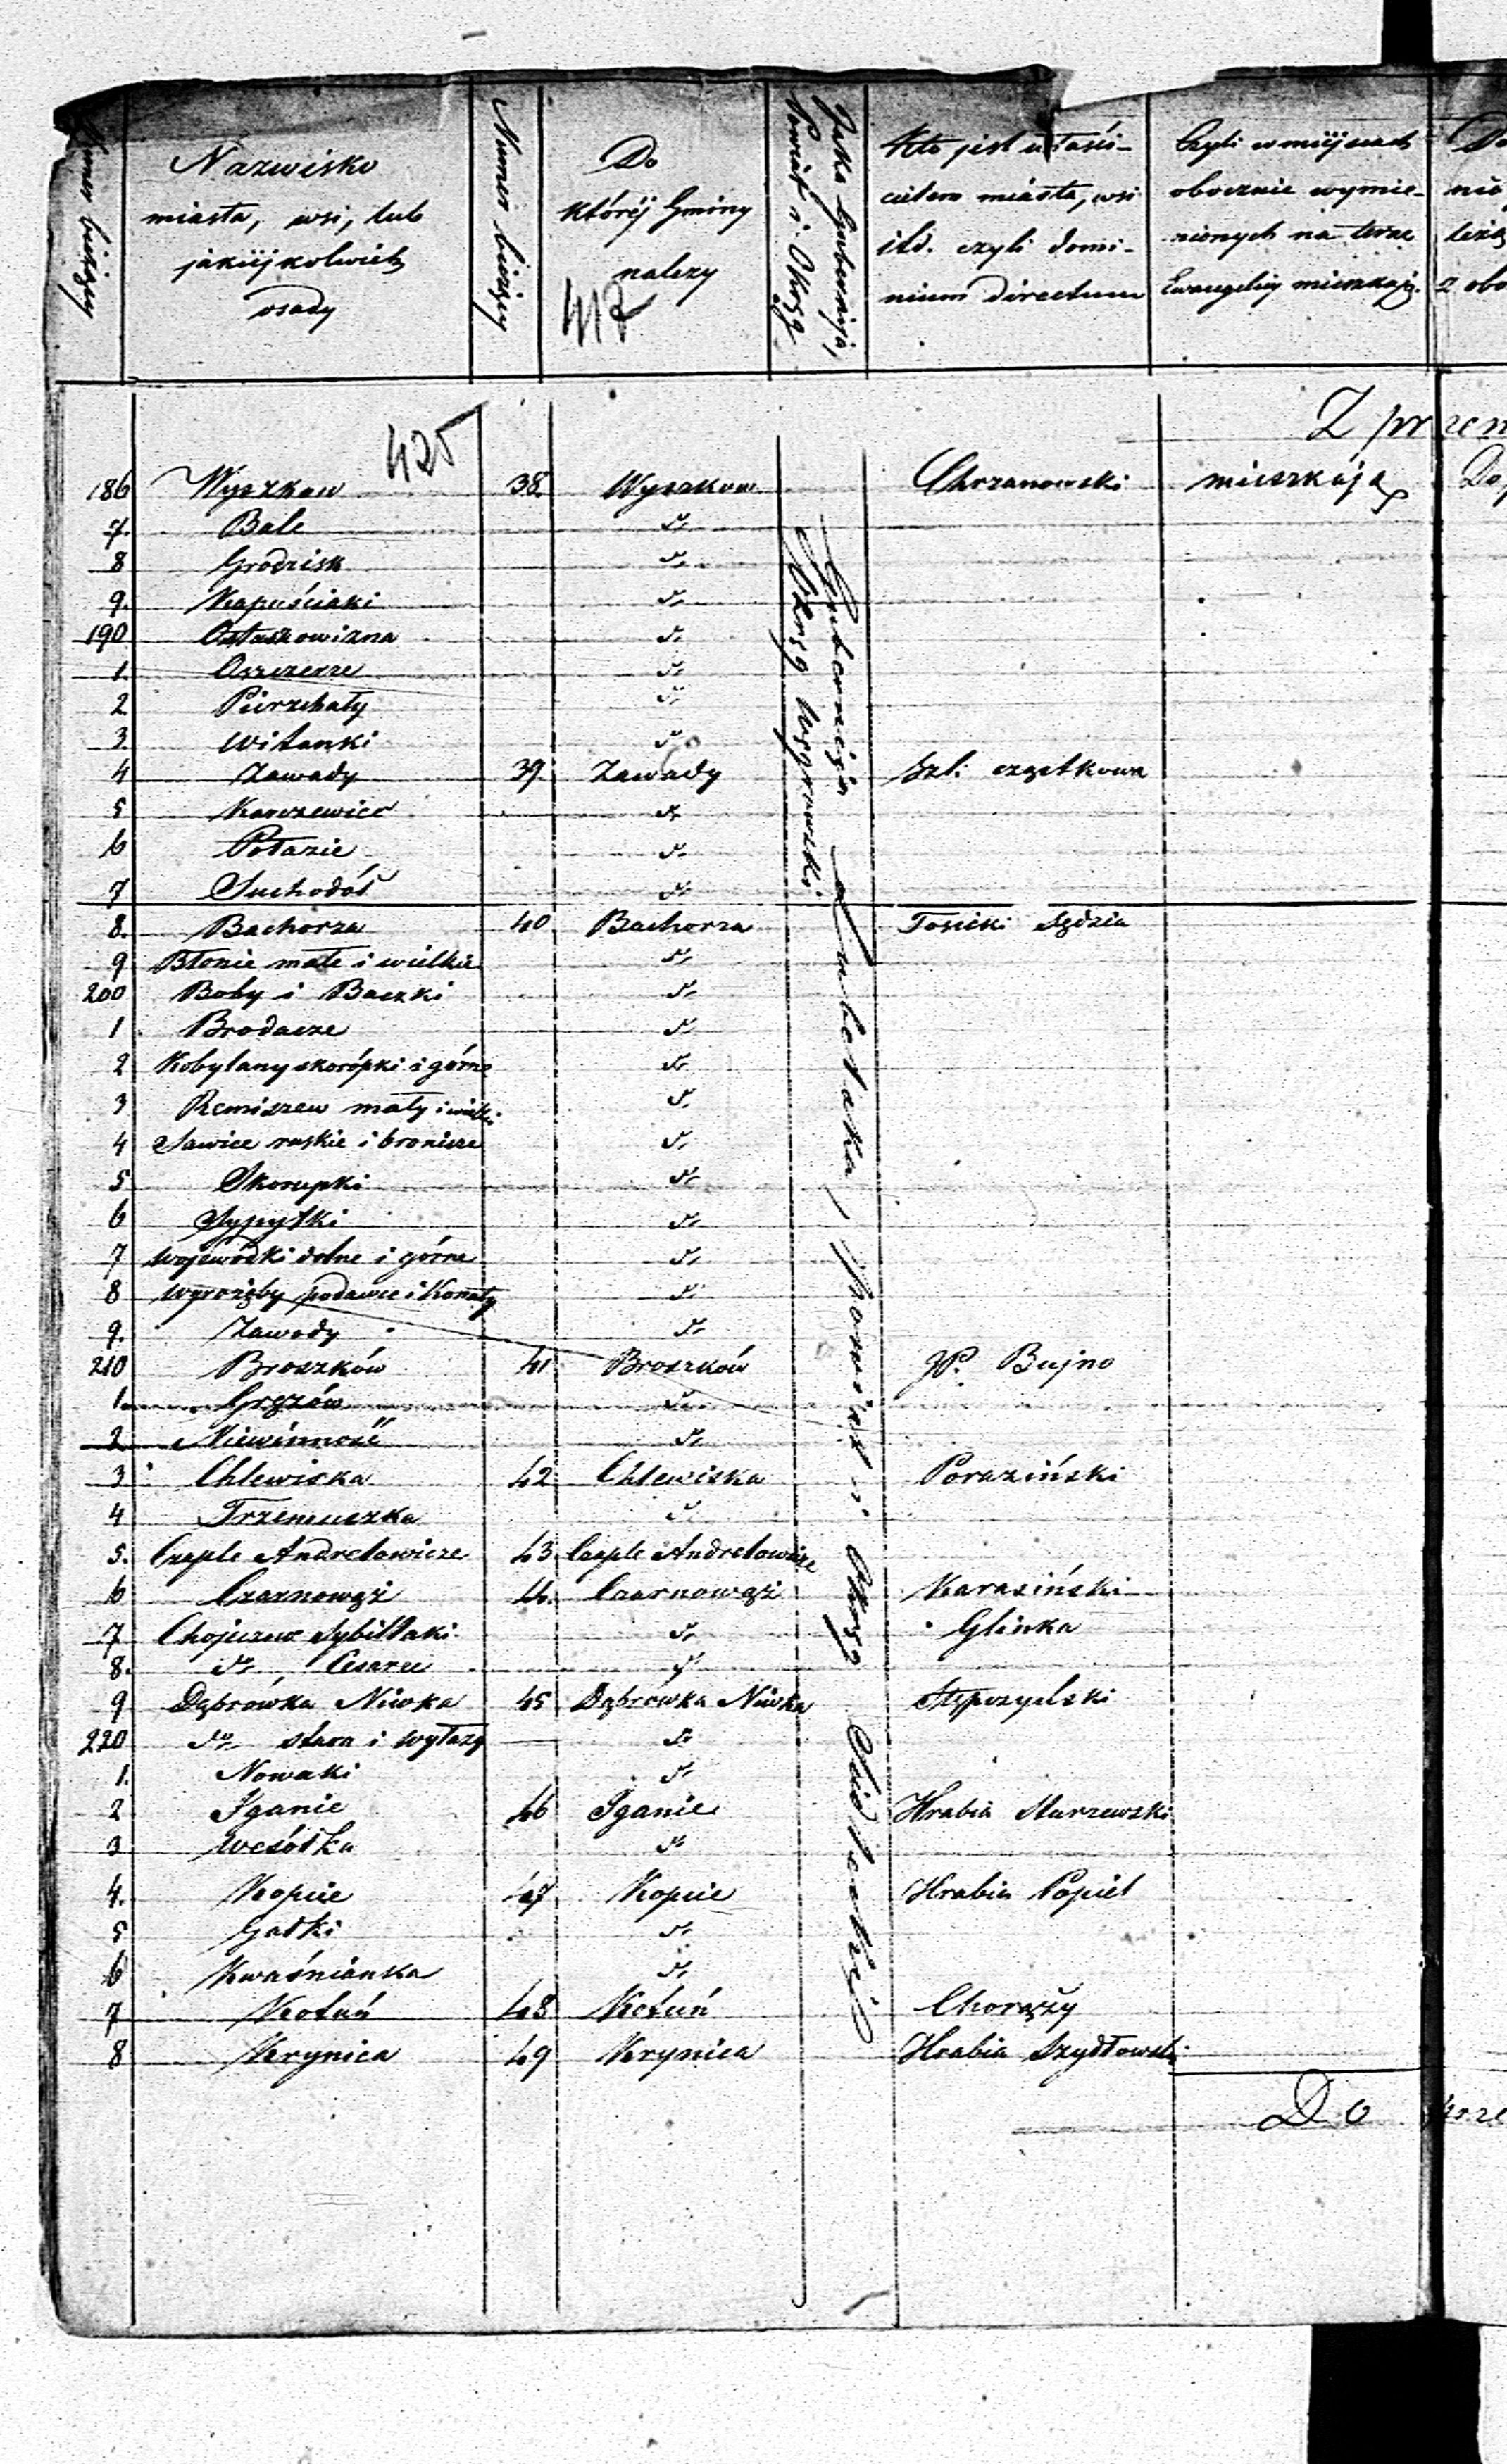 Numer bieżący
Nazwisko
miasta, wsi, lub
jakiéjkolwiek
osady
Numer bieżący
Do
któréj Gminy
należy
417
Jaka Gubernija,
Powiat i Okrąg
Kto jest właści-
cielem miasta, wsi
itd. czyli domi-
nium directum
Czyli w miejscach
obocznie wymie-
nionych na teraz
Ewangelicy mieszkają.
425
Z przen
186 Wyszkow 38. Wyszkow Chrzanowski mieszkają
7. Bale do
8 Grodzisk do
9. Kapuściaki do
190 Ostaszowizna do
1. Oszczerze do
2 Pierzchały do
3 Witanki do
4 Zawady 39. Zawady Szl: cząstkowa
5 Karczewiec do
6 Połazie do
7 Suchodół do
Okrąg Węgrowski
8. Bachorza 40 Bachorza Tosicki Sędzia
9 Błonie małe i wielkie do
200 Boby i Baczki do
1. Brodacze do
2 Kobylany skorópki i górne do
3 Remiszew mały i wielki do
4 Sawice ruskie i bronisze do
5 Skorupki do
6 Sypytki do
7 Wojewódki dolne i górne do
8 Wyrozęby podawce i Konaty do
9. Zawady do
210 Broszków 41 Broszków JP. Bujno
1. Gręzów do
2 Niewinność do
3 Chlewiska 42 Chlewiska Poraziński
4 Trzemuszka do
5. Czeple Andrelowicze 43 Czeple Andrelowicze
6 Czarnowąż 44. Czarnowąż Karasiński
7 Chojeczno Sybillaki do Glinka
8. do Cesarze do
9 Dąbrówka Niwka 45 Dąbrówka Niwka Stępczyński
220 do stara i wyłazy do
1. Nowaki do
2 Iganie 46 Iganie Hrabia Starzewski
3 Wesółka do
4. Kopcie 47 Kopcie Hrabia Popiel
5 Gałki do
6 Kwaśnianka do
7 Kotuń 48 Kotuń Chorąży
8 Krynica 49 Krynica Hrabia Szydłowski
Gubernija Lubelska, Powiat i Okrąg Siedlecki
Do prze